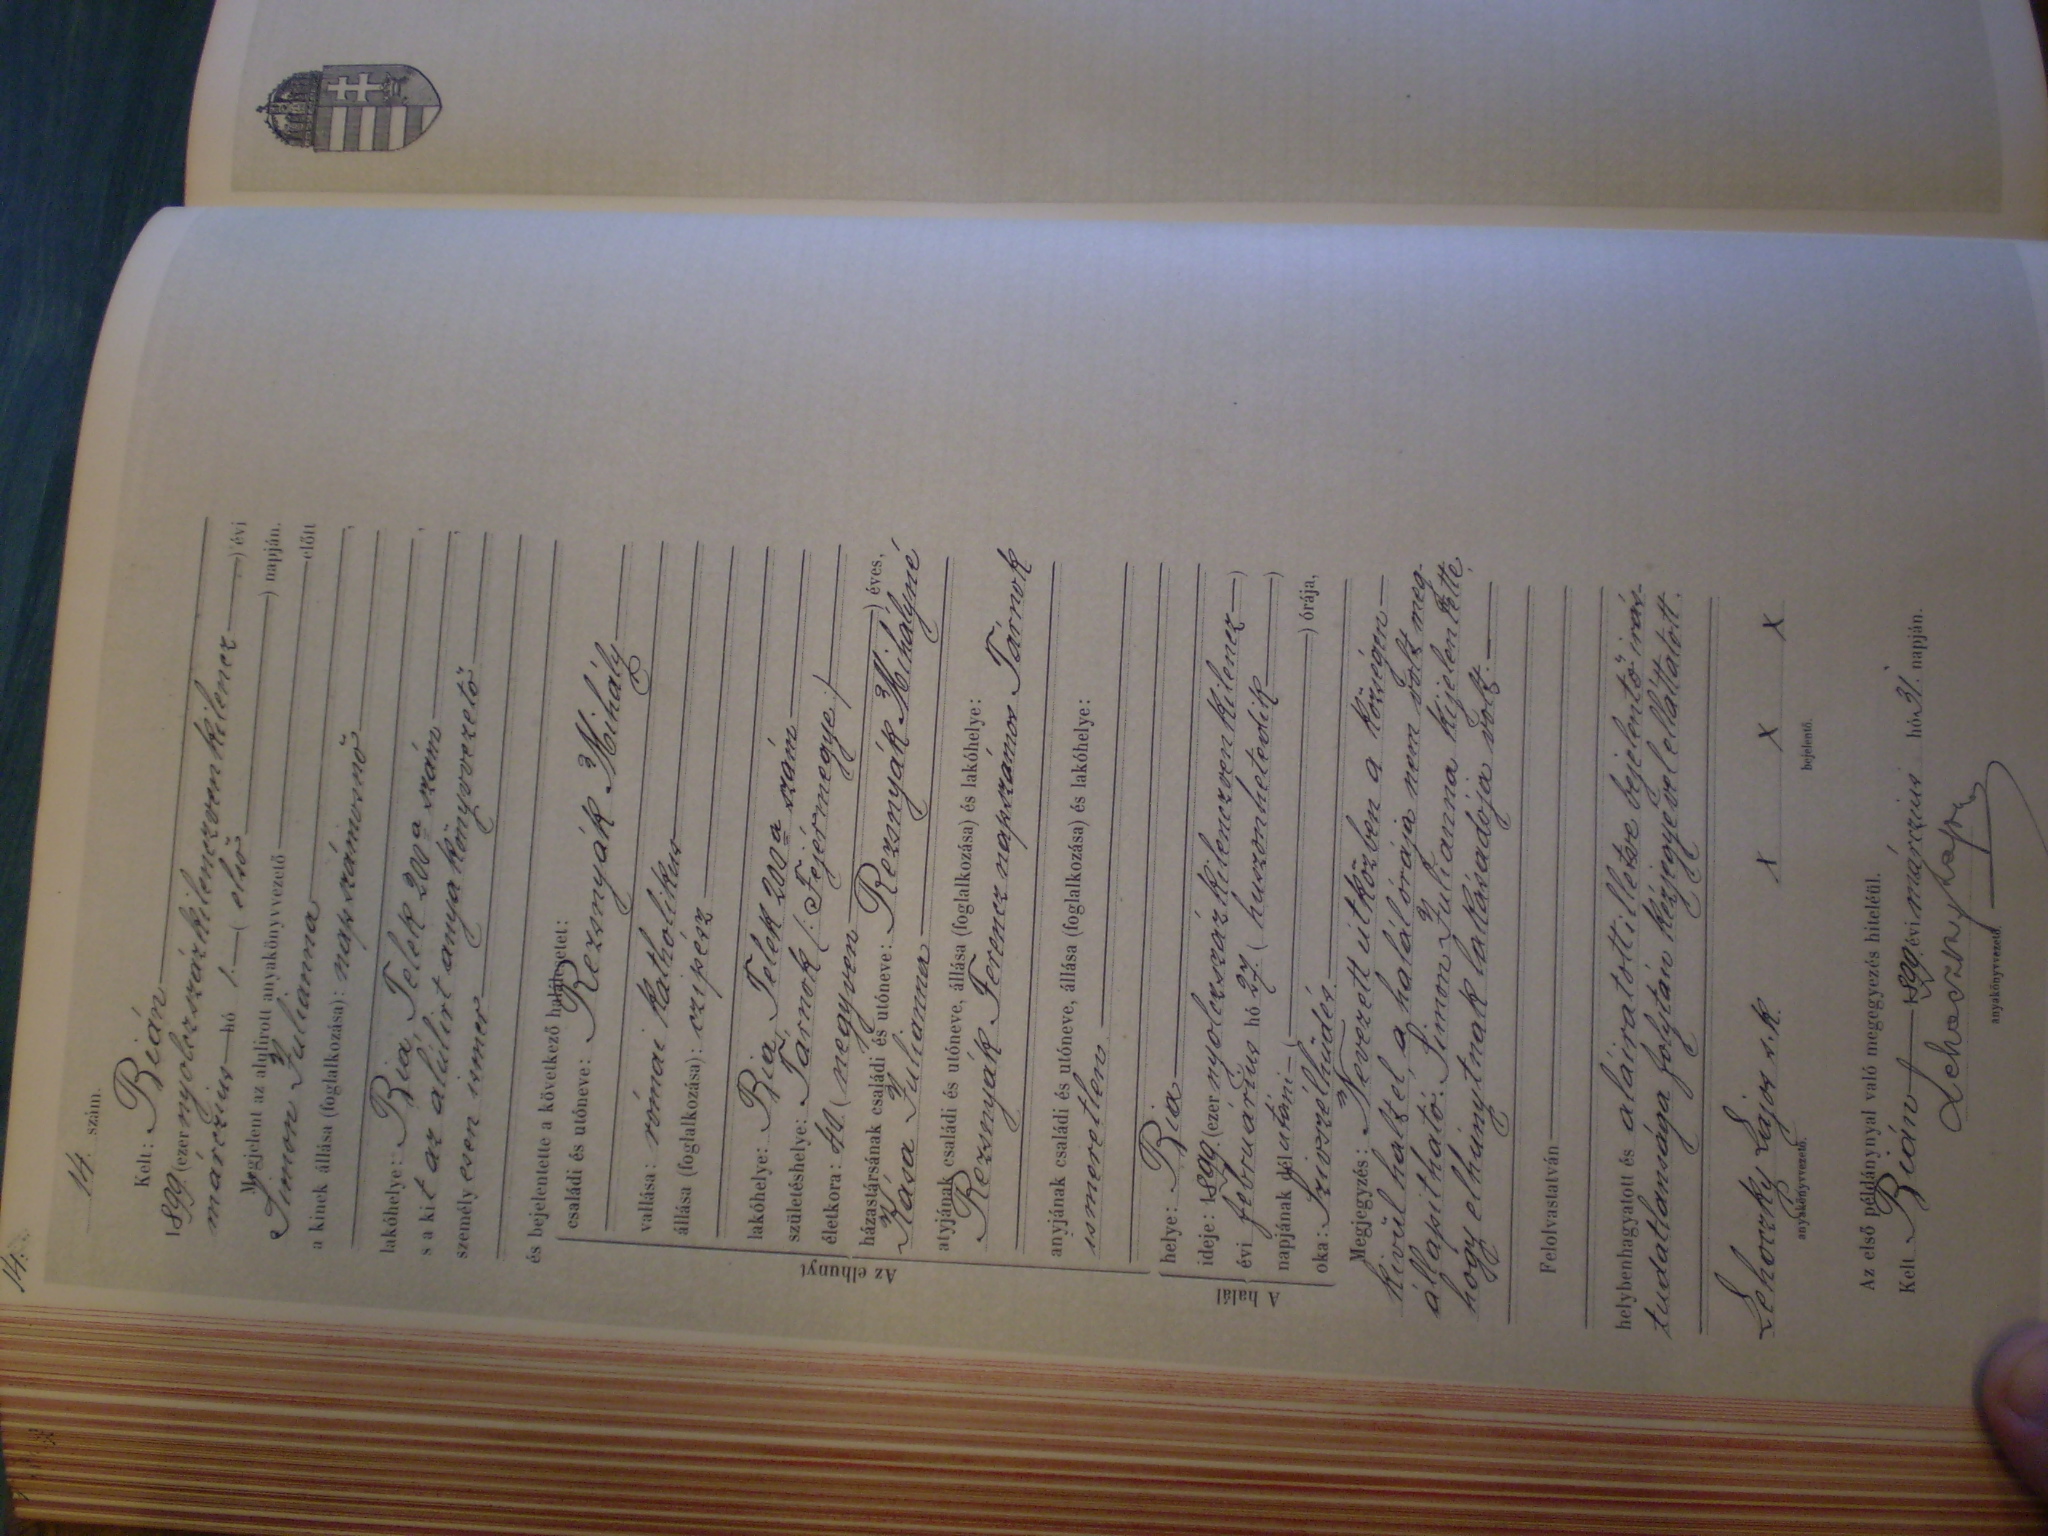 14.
14. szám.
Kelt: Bián
1899. (ezer nyolczszázkilenczvenkilencz) évi
márczius hó 1. (első) napján.
Megjelent az alulirott anyakönyvvezető előtt
Simon Julianna
a kinek állása (foglalkozása): napszámosnő,
lakóhelye: Bia Telek 200 a szám,
s a kit az alulirt anyakönyvvezető
személyesen ismer
és bejelentette a következő halálesetet:
Az elhunyt
családi és utóneve: Rezsnyák Mihály
vallása: római katholikus
állása (foglalkozása): czipész
lakóhelye: Bia Telek 200 a szám
születéshelye: Tárnok (: Fejérmegye :)
életkora: 40. (negyven) éves,
házastársának családi és utóneve: Rezsnyák Mihályné
Kósa Julianna
atyjának családi és utóneve, állása (foglalkozása) és lakóhelye:
Rezsnyák Ferencz napszámos Tárnok
anyjának családi és utóneve, állása (foglalkozása) és lakóhelye:
ismeretlen
A halál
helye: Bia
ideje: 1899. (ezer nyolczszázkilenczvenkilencz)
évi február hó 27. (huszonhetedik)
napjának dél utáni ( ) órája,
oka: Szivszélhüdés.
Megjegyzés: Nevezett útközben a községen
kivül halt el, a halálórája nem volt meg-
állapítható. Simon Julianna kijelentette,
hogy elhunytnak lakásadója volt.
Felolvastatván
helybenhagyatott és aláiratott illetve bejelentő irás-
tudatlansága folytán kézjegyével elláttatott.
Lehoczky Lajos s. k. x x x
anyakönyvvezető. bejelentő.
Az első példánynyal való megegyezés hiteléül.
Kelt Bián 1899. évi márczius hó 31. napján.
Lehoczky Lajos
anyakönyvvezető.